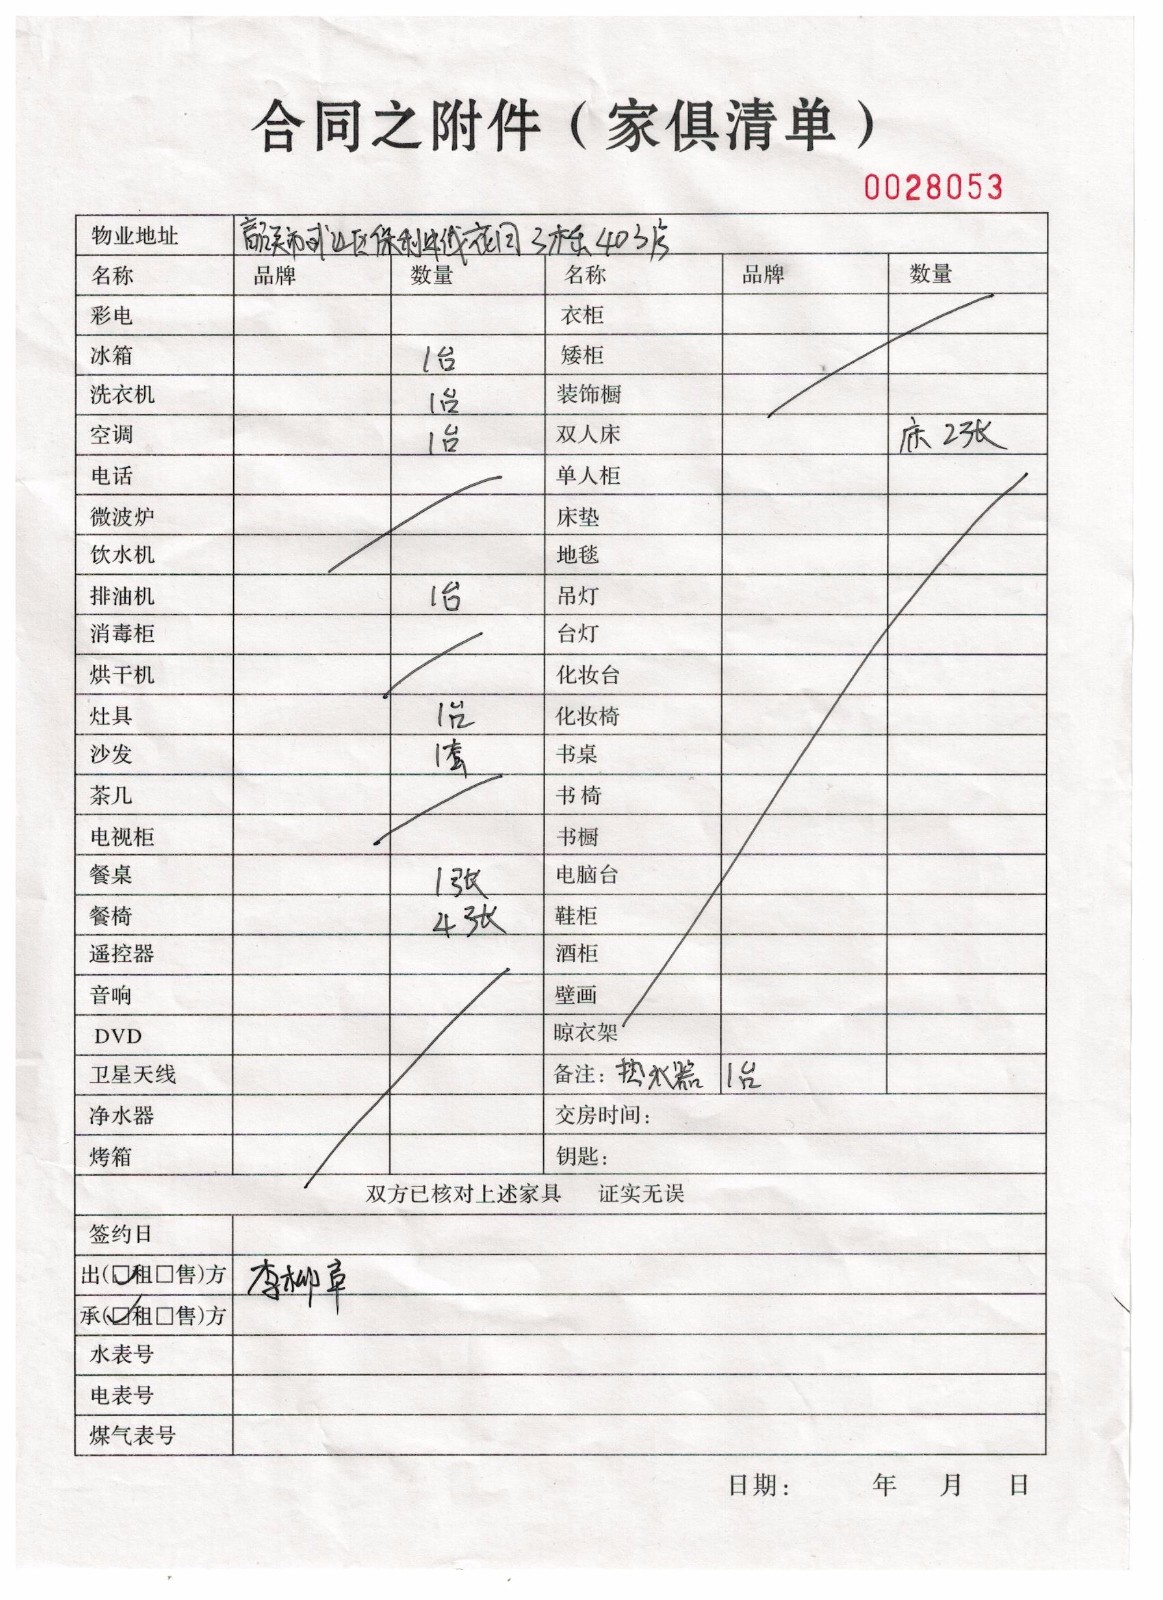 合同之附件（家俱清单）
0028053
物业地址 韶关市武江区保利中线花园3栋403房
名称 品牌 数量 名称 品牌 数量
彩电 衣柜
冰箱 1台 矮柜
洗衣机 1台 装饰橱
空调 1台 双人床 床2张
电话 单人柜
微波炉 床垫
饮水机 地毯
排油机 1台 吊灯
消毒柜 台灯
烘干机 化妆台
灶具 1台 化妆椅
沙发 1套 书桌
茶几 书椅
电视柜 书橱
餐桌 1张 电脑台
餐椅 4张 鞋柜
遥控器 酒柜
音响 壁画
DVD 晾衣架
卫星天线 备注：热水器 1台
净水器 交房时间：
烤箱 钥匙：
双方已核对上述家具 证实无误
签约日
出(☑租□售)方 李柳章
承(☑租□售)方
水表号
电表号
煤气表号
日期： 年 月 日